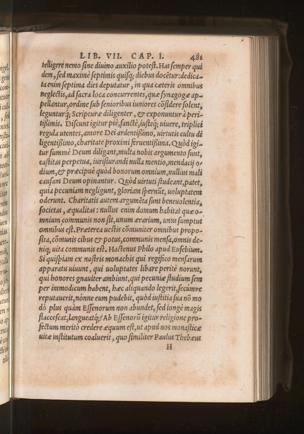 LIB. VII. CAP. I. 481
telligere nemo sine diuino auxilio potest. Hæ semper qui
dem, sed maximè septimis quisq; diebus docetur: dedica-
ta enim septima dies deputatur, in qua cæteris omnibus
neglectis, ad sacra loca concurrentes, quæ synagogæ ap-
pellantur, ordine sub senioribus iuniores cõsidere solent,
legunturq́; Scripturæ diligenter, & exponuntur à peri-
tissimis. Discunt igitur piè, sanctè, iustéq; uiuere, triplici
regula utentes, amore Dei ardentissimo, uirtutis cultu di
ligentissimo, charitate proximi seruentissima. Quòd igi-
tur summè Deum diligant, multa nobis argumento sunt,
castitas perpetua, iurisiurandi nulla mentio, mendacij o-
dium, & præcipuè quòd bonorum omnium, nullius mali
causam Deum opinantur. Quòd uirtuti studeant, patet,
quia pecuniam negligunt, gloriam spernũt, uoluptatem
oderunt. Charitatis autem argumẽta sunt beneuolentia,
societas, æqualitas: nullus enim domum habitat quæ o-
mnium communis non sit, unum ærarium, unius sumptus
omnibus est. Præterea uectis cõmuniter omnibus propo-
sita, cõmunis cibus & potus, communis mensa, omnis de-
niq; uita communis est. Hactenus Philo apud Eusebium.
Si quispiam ex nostris monachis qui regifico mensarum
apparatu uiuunt, qui uoluptates libare peritè norunt,
qui honores gnauiter ambiunt, qui pecuniæ studium sem
per immodicum habent, hæc aliquando legerit, secumq́;
reputauerit, nónne eum pudebit, quòd iustitia sua nõ mo
dò plus quàm Essenorum non abundet, sed longè magis
flaccescat, langueatq́;? Ab Essenorũ igitur religione pro-
fectum meritò credere æquum est, ut apud nos monasticæ
uitæ institutum coaluerit, quo similiter Paulus Thebæus
H